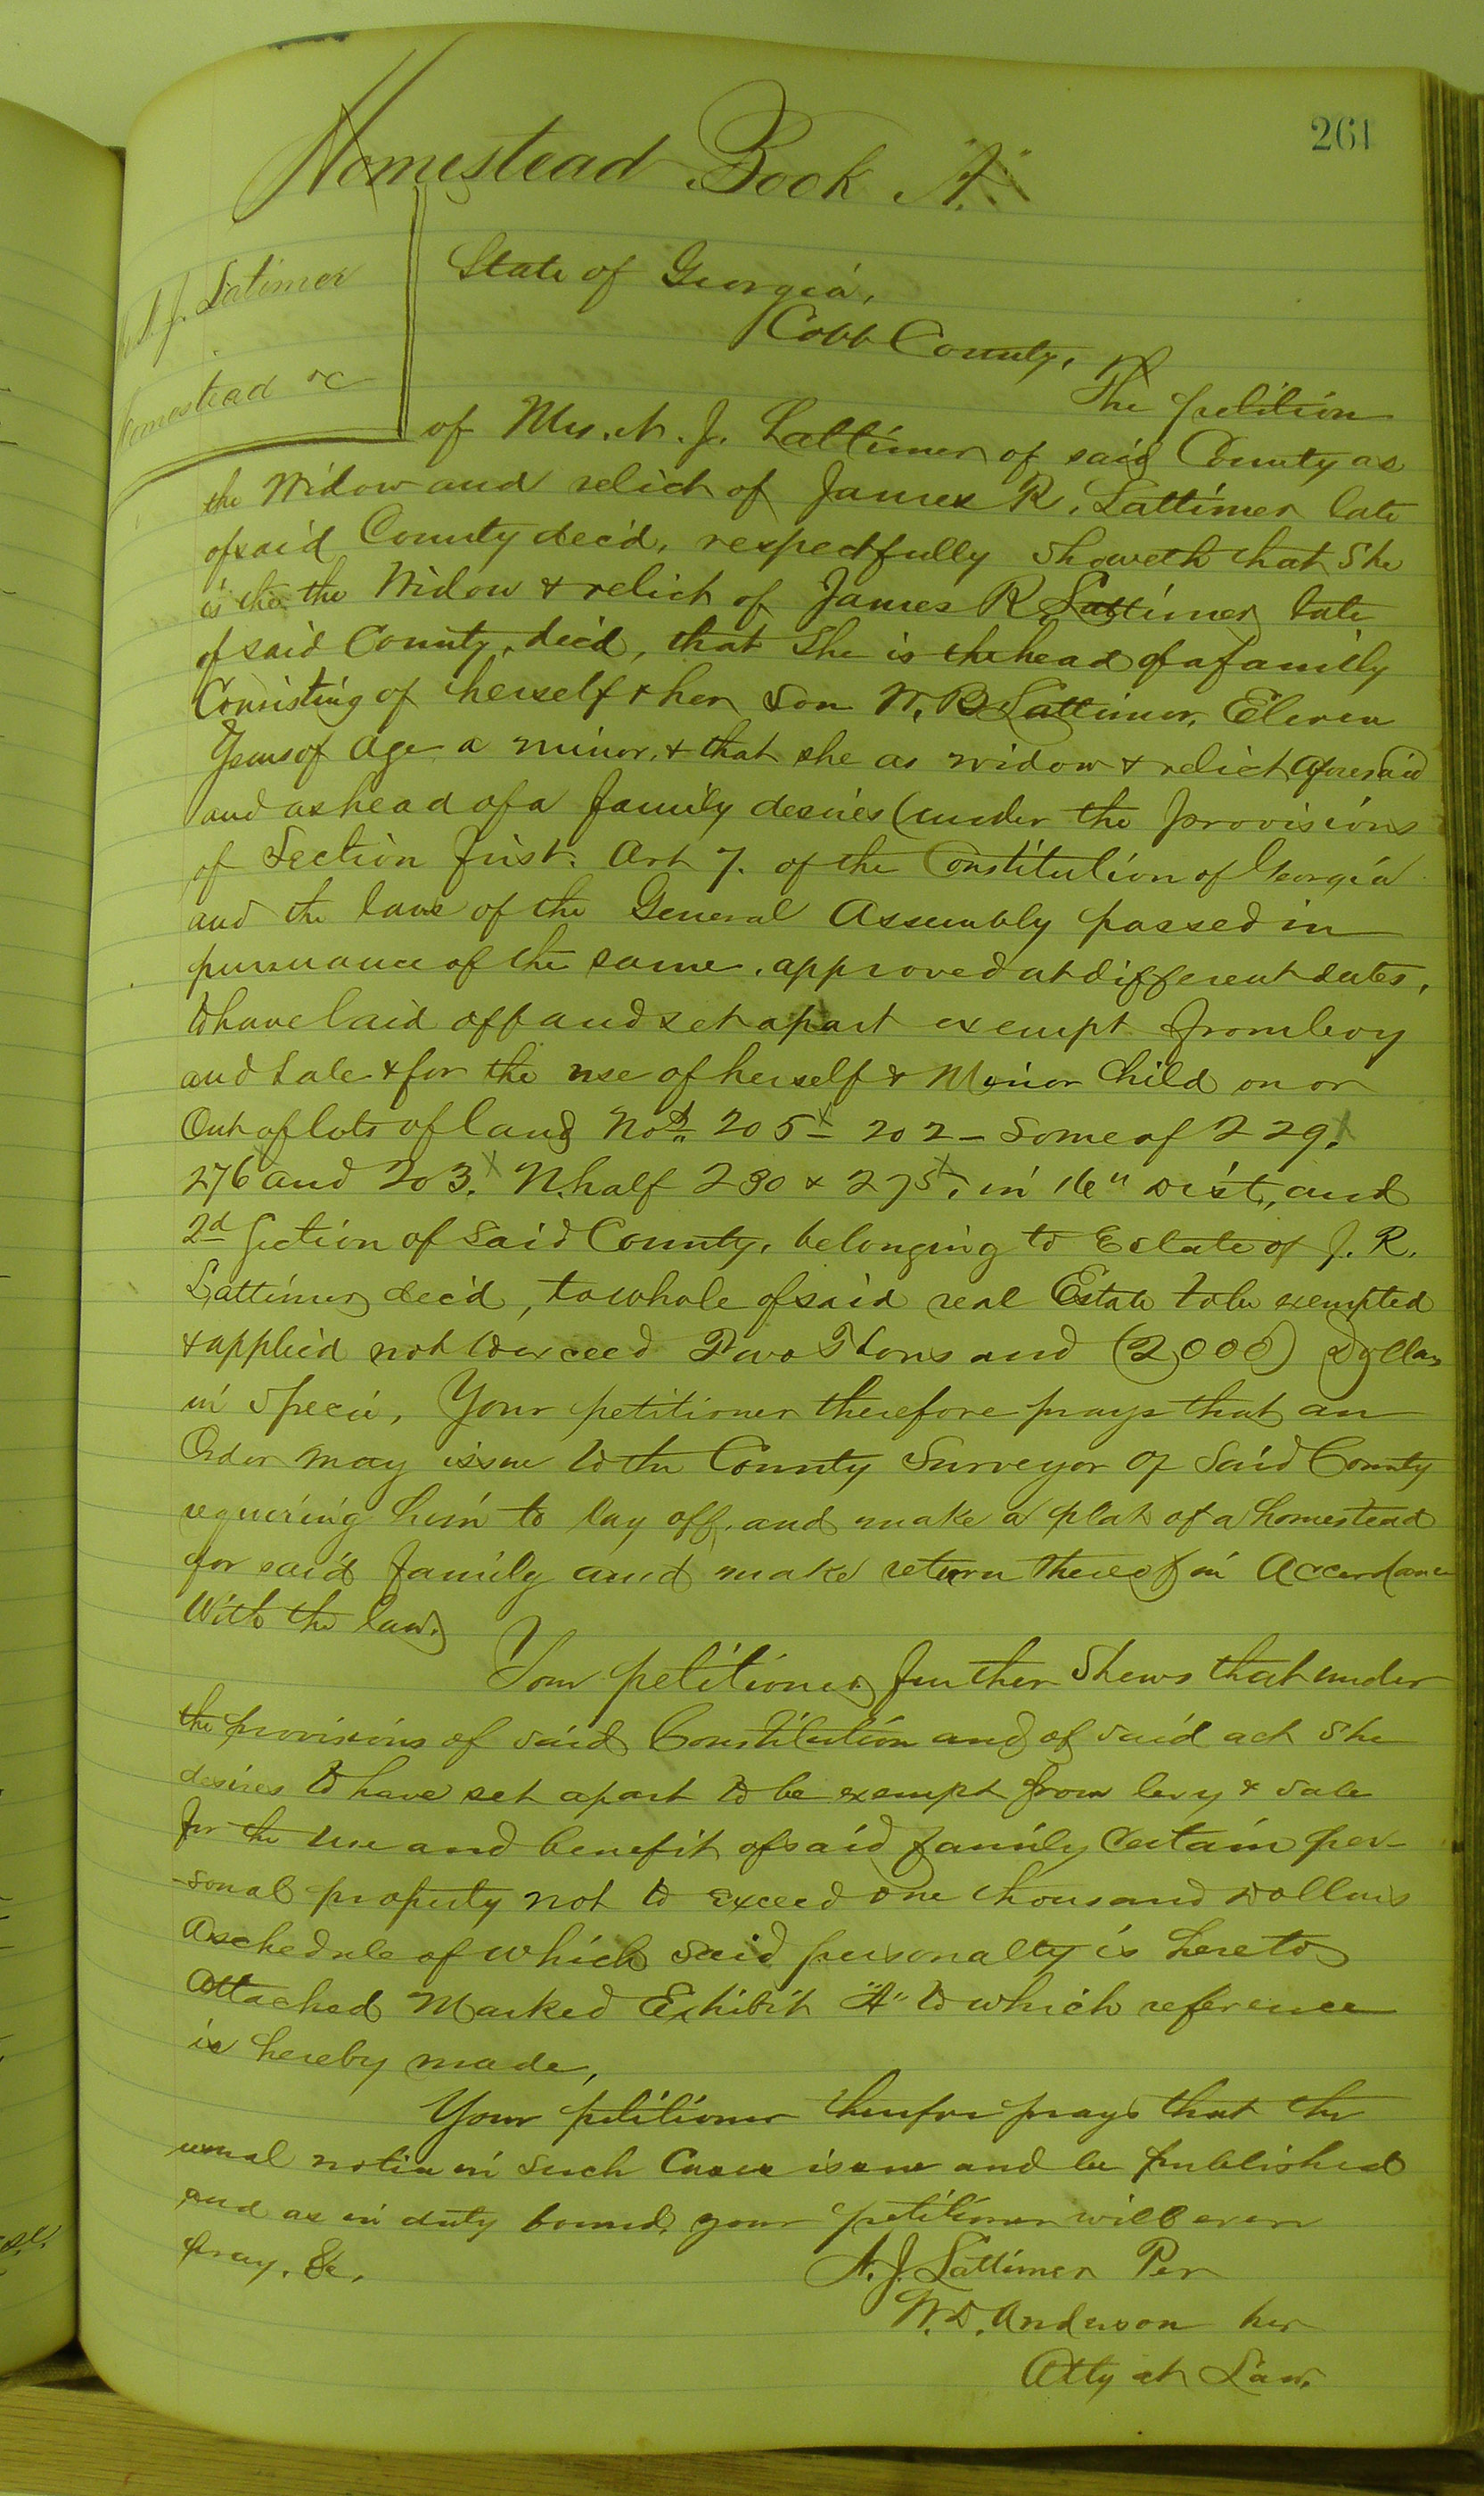 261
Homestead Book "A"
J. Latimer
Homestead &c
State of Georgia,
Cobb County,
The petition
of Mrs. A. J. Lattimer of said County as
the Widow and relict of James R. Lattimer late
of said County dec'd, respectfully showeth that She
is the Widow & relict of James R. Lattimer late
of said County, dec'd, that She is the head of a family
Consisting of herself & her Son W. B. Lattimer, Eleven
Years of age a minor, & that she as widow & relict aforesaid
and as head of a family desires (under the provisions
of Section first. Art 7. of the Constitution of Georgia
and the laws of the General Assembly passed in
pursuance of the same, approved at different dates,
to have laid off and set apart exempt from levy
and Sale & for the use of herself & Minor Child on or
Out of lots of land Nos. 205 - 202 - Some of 229.
276 and 203. N. half 230 & 275, in 16" Dist, and
2d Section of Said County, belonging to Estate of J. R.
Lattimer dec'd, to whole of said real Estate to be exempted
& applied not to exceed Two Thousand (2000) Dollars
in Specie, Your petitioner therefore prays that an
Order may issue to the County Surveyor of Said County
requiring him to lay off, and make a plat of a homestead
for said family and make return thereof in Accordance
With the law.
Your petitioner further Shews that under
the provisions of said Constitution and of said act She
desires to have set apart to be exempt from levy & sale
for the use and benefit of said family Certain per-
-sonal property not to exceed One thousand dollars
A schedule of which said personalty is hereto
Attached Marked Exhibit "A" to which reference
is hereby made,
Your petitioner therefore prays that the
usual notice in Such Cases issue and be published
and as in duty bound, your petitioner will ever
pray, &c,
A. J. Lattimer Per
W. D. Anderson her
Atty at Law.